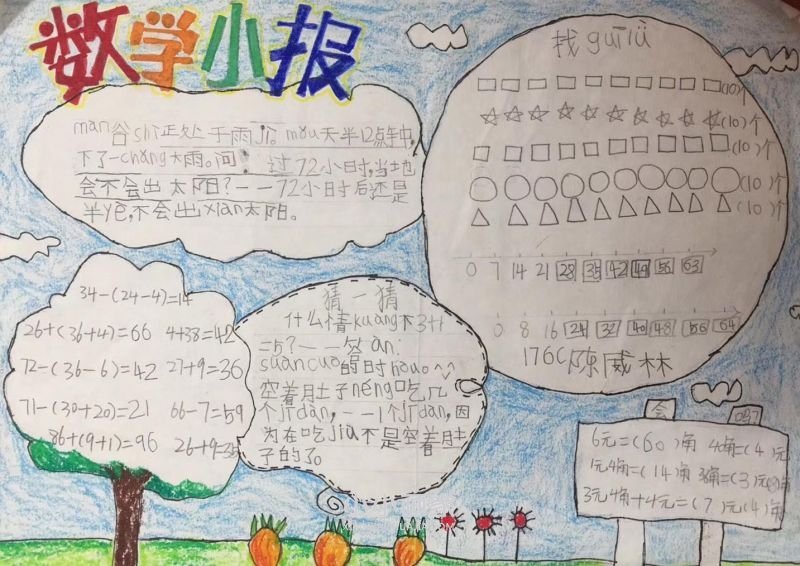 数学小报
man谷shì正处于雨jì。mǒu天半12点午中,
下了一chǎng大雨。问:过72小时,当地
会不会出太阳?——72小时后还是
半yè,不会出xiàn太阳。
找guīlǜ
(10)个
(10)个
(10)个
(10)个
(10)个
0 7 14 21 28 35 42 49 56 63
0 8 16 24 32 40 48 56 64
176C陈威林
34-(24-4)=14
26+(36+4)=66 4+38=42
72-(36-6)=42 27+9=36
71-(30+20)=21 66-7=59
86+(9+1)=96 26+9=35
猜一猜
什么情kuàng下3+1
=5?——答àn:
suàncuò的时hòu。
空着肚子néng吃几
个jīdàn,——1个jīdàn,因
为在吃jiù不是空着肚
子的了。
会 吗?
6元=(60)角 4角=(4)元
1元4角=(14)角
3元4角+4元=(7)元(4)角